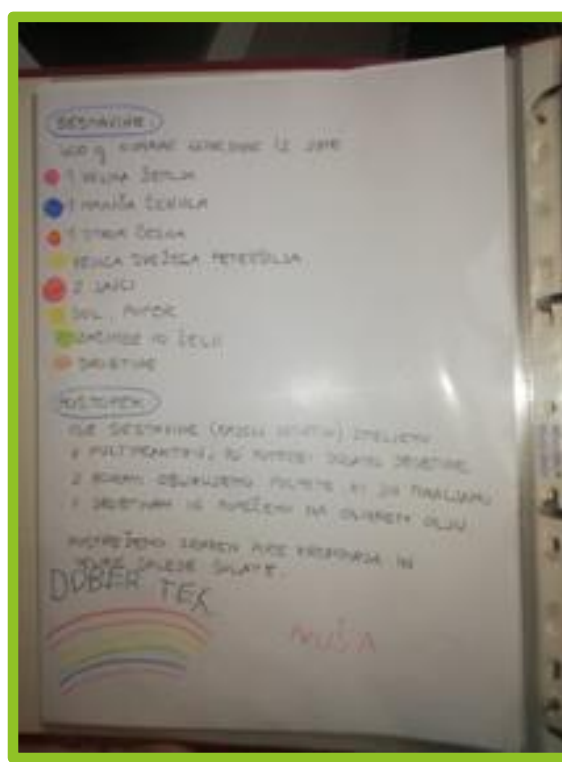 SESTAVINE
400 g KUHANE GOVEDINE IZ JUHE
1 VELIKA ŽEMLJA
1 MANJŠA ČEBULA
1 STROK ČESNA
VEJICA SVEŽEGA PETERŠILJA
2 JAJCI
SOL, POPER
ZAČIMBE PO ŽELJI
DROBTINE
POSTOPEK
VSE SESTAVINE (RAZEN DROBTIN) ZMELJEMO
V MULTIPRAKTIKU, PO POTREBI DODAMO DROBTINE
Z ROKAMI OBLIKUJEMO POLPETE KI JIH POVALJAMO
V DROBTINAH IN POPEČEMO NA OLJU
POSTREŽEMO ZRAVEN PIRE KROMPIRJA IN
SOLATE.
DOBER TEK
NUŠA